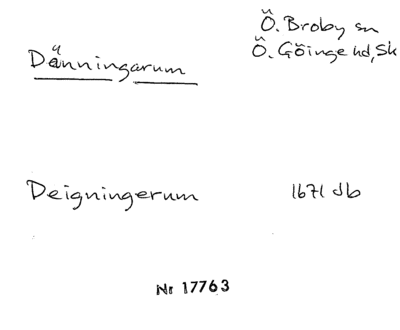 Ö. Broby sn
Dänningarum
Ö. Göinge hd, Sk
Deigningerum 1671 Jb
Nr 17763